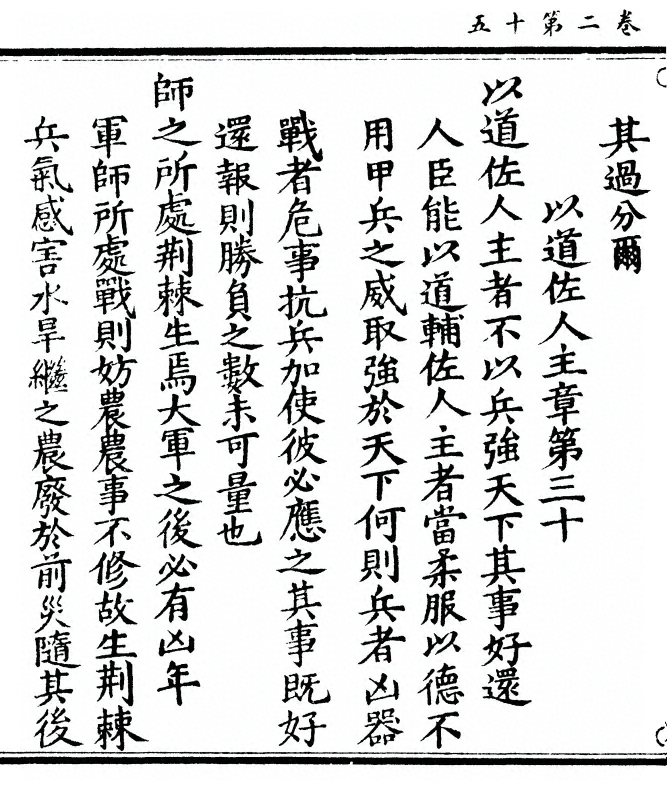 卷二第十五
其過分爾
以道佐人主章第三十
以道佐人主者不以兵強天下其事好還
人臣能以道輔佐人主者當柔服以德不
用甲兵之威取強於天下何則兵者凶器
戰者危事抗兵加使彼必應之其事既好
還報則勝負之數未可量也
師之所處荆棘生焉大軍之後必有凶年
軍師所處戰則妨農農事不修故生荆棘
兵氣感害水旱繼之農廢於前災隨其後